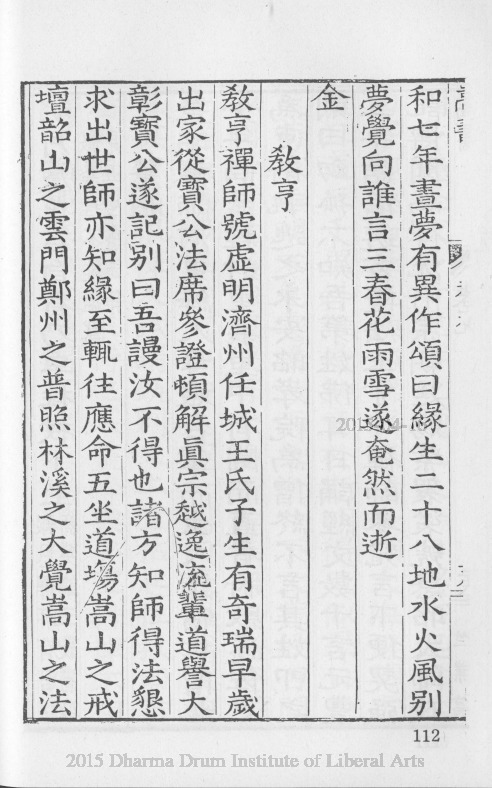 和七年晝夢有異作頌曰緣生二十八地水火風別
夢覺向誰言三春花雨雪遂奄然而逝
金
教亨
敎亨禪師號虛明濟州任城王氏子生有奇瑞早歲
出家從寶公法席參證頓解眞宗越逸流輩道譽大
彰寶公遂記別曰吾謾汝不得也諸方知師得法懇
求出世師亦知緣至輒往應命五坐道場嵩山之戒
壇韶山之雲門鄭州之普照林溪之大覺嵩山之法
112
2015 Dharma Drum Institute of Liberal Arts